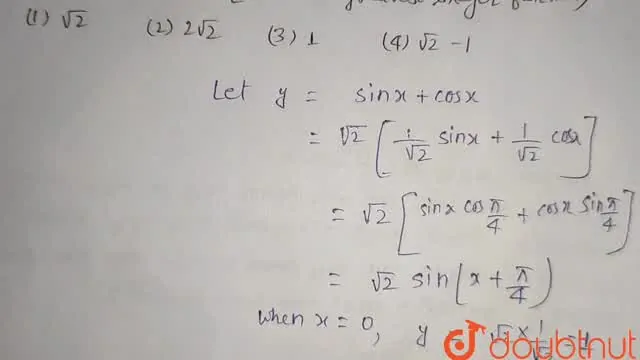 (1) √2 (2) 2√2 (3) 1 (4) √2 - 1
Let y = sinx + cosx
= √2 [ 1/√2 sinx + 1/√2 cosx ]
= √2 [ sinx cos π/4 + cosx sin π/4 ]
= √2 sin ( x + π/4 )
when x = 0, y = √2 × 1
doubtnut